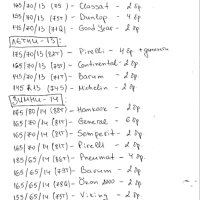 165/70/13 (79) - Classat - 2 бр.
135/70/13 (75T) - Dunlop - 4 бр.
145/70/13 (71Q) - Good Year - 2 бр.
ЛЕТНИ - 13:
175/70/13 (82T) - Pirelli - 4 бр +
165/70/13 (79T) - Continental - 2 бр
145/70/13 (71T) - Barum - 2 бр
145 R 13 (74S) - Michelin - 2 бр.
ЗИМНИ - 14
185/80/14 (88T) - Hankook - 2 бр.
165/70/14 (81T) - General - 6 бр
165/70/14 (81T) - Semperit - 2 бр.
165/70/14 (81T) - Pirelli - 2 бр
185/65/14 (86T) - Pneumat - 4 бр.
165/65/14 (79T) - Barum - 2 бр.
165/65/14 (78Q) - Ökon 2000 - 2 бр
155/65/14 (75T) - Viking - 2 бр